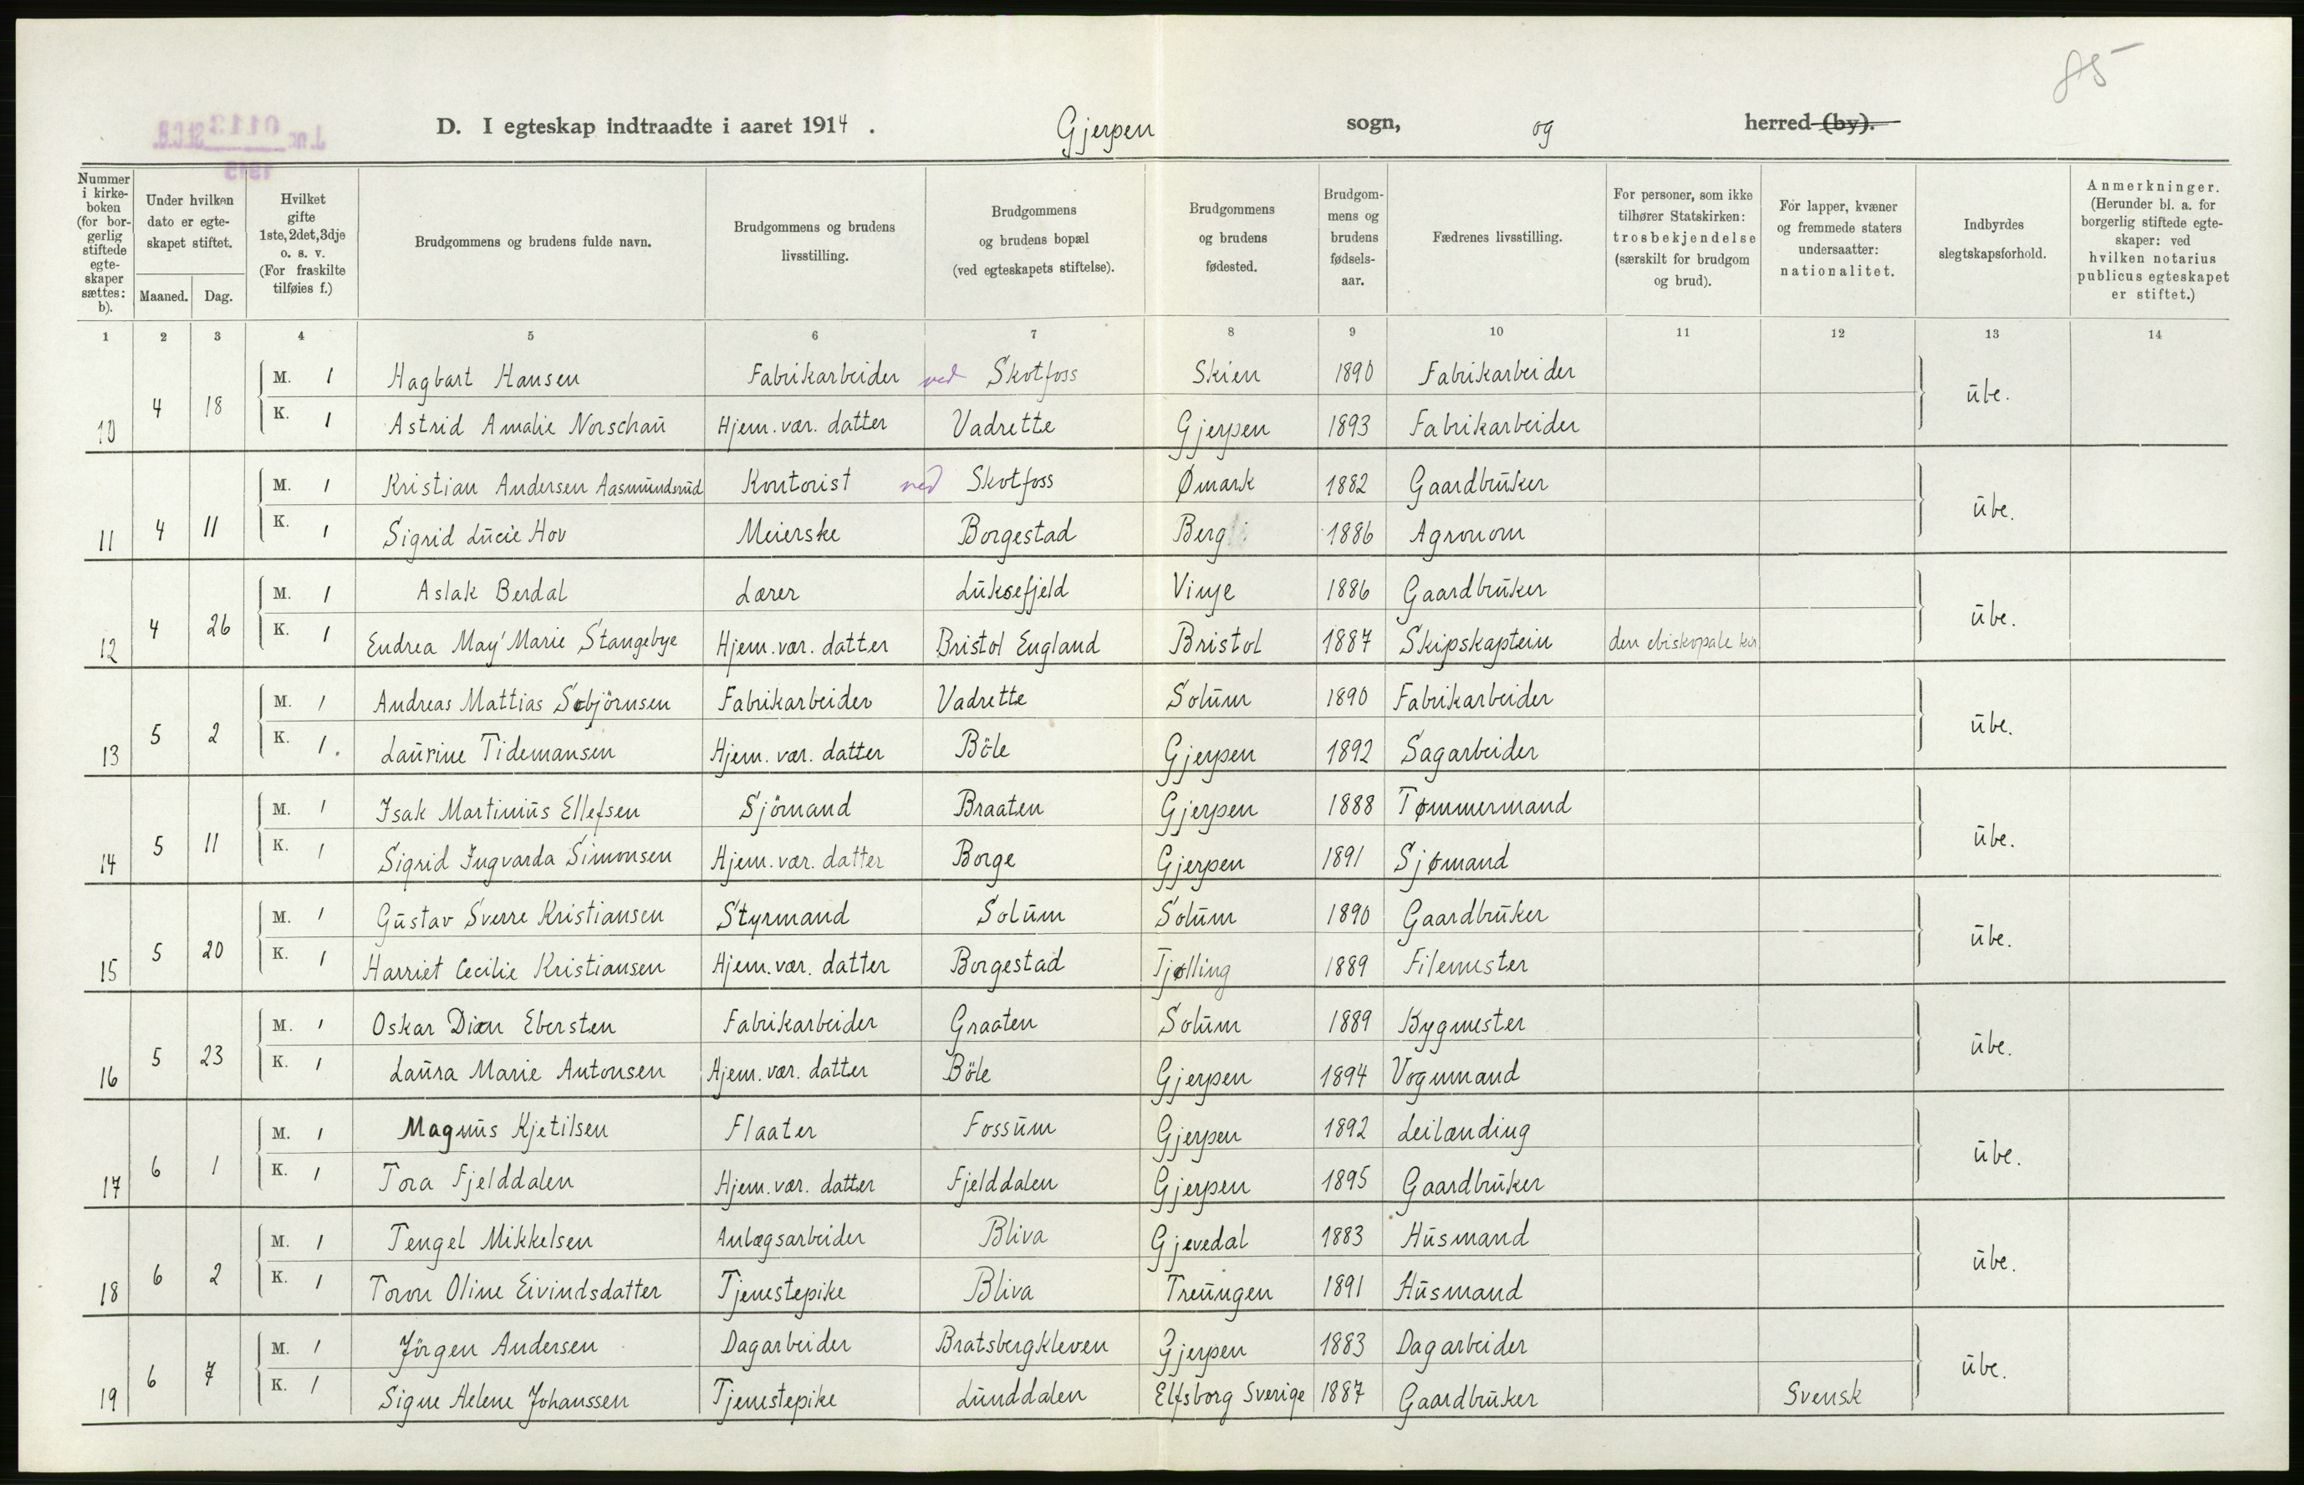 85
J.nr. 0113 St.C.B.
1915
D. I egteskap indtraadte i aaret 1914. Gjerpen sogn, og herred (by).
Nummer i kirkeboken (for borgerlig stiftede egteskaper sættes: b).
Under hvilken dato er egteskapet stiftet.
Maaned. Dag.
Hvilket gifte 1ste, 2det, 3dje o. s. v. (For fraskilte tilføies f.)
Brudgommens og brudens fulde navn.
Brudgommens og brudens livsstilling.
Brudgommens og brudens bopæl (ved egteskapets stiftelse).
Brudgommens og brudens fødested.
Brudgommens og brudens fødselsaar.
Fædrenes livsstilling.
For personer, som ikke tilhører Statskirken: trosbekjendelse (særskilt for brudgom og brud).
For lapper, kvæner og fremmede staters undersaatter: nationalitet.
Indbyrdes slegtskapsforhold.
Anmerkninger. (Herunder bl. a. for borgerlig stiftede egteskaper: ved hvilken notarius publicus egteskapet er stiftet.)
1 2 3 4 5 6 7 8 9 10 11 12 13 14
10 4 18 M. 1 Hagbart Hansen Fabrikarbeider ved Skotfoss Skien 1890 Fabrikarbeider übe.
K. 1 Astrid Amalie Norschaü Hjem. vær. datter Vadrette Gjerpen 1893 Fabrikarbeider
11 4 11 M. 1 Kristian Andersen Aasmündsrüd Kontorist ved Skotfoss Ømark 1882 Gaardbrüker übe.
K. 1 Sigrid Lücie Hov Meierske Borgestad Berg 1886 Agronom
12 4 26 M. 1 Aslak Berdal Lærer Lüksefjeld Vinje 1886 Gaardbrüker übe.
K. 1 Endrea May Marie Stangebye Hjem. vær. datter Bristol England Bristol 1887 Skipskaptein den ebiskopale kir
13 5 2 M. 1 Andreas Mattias Sebjörnsen Fabrikarbeider Vadrette Solüm 1890 Fabrikarbeider übe.
K. 1. Laürine Tidemansen Hjem. vær. datter Böle Gjerpen 1892 Sagarbeider
14 5 11 M. 1 Isak Martiniüs Ellefsen Sjömand Braaten Gjerpen 1888 Tømmermand übe.
K. 1 Sigrid Ingvarda Simonsen Hjem. vær. datter Borge Gjerpen 1891 Sjømand
15 5 20 M. 1 Güstav Sverre Kristiansen Styrmand Solüm Solüm 1890 Gaardbrüker übe.
K. 1 Harriet Cecilie Kristiansen Hjem. vær. datter Borgestad Tjølling 1889 Filemester
16 5 23 M. 1 Oskar Dian Ebersten Fabrikarbeider Graaten Solüm 1889 Bygmester übe.
K. 1 Laüra Marie Antonsen Hjem. vær. datter Böle Gjerpen 1894 Vognmand
17 6 1 M. 1 Magnüs Kjetilsen Flaater Fossüm Gjerpen 1892 Leilænding übe.
K. 1 Tora Fjelddalen Hjem. vær. datter Fjelddalen Gjerpen 1895 Gaardbrüker
18 6 2 M. 1 Tengel Mikkelsen Anlægsarbeider Bliva Gjevedal 1883 Hüsmand übe.
K. 1 Toron Oline Eivindsdatter Tjenestepike Bliva Treüngen 1891 Hüsmand
19 6 7 M. 1 Jörgen Andersen Dagarbeider Bratsbergkleven Gjerpen 1883 Dagarbeider übe.
K. 1 Signe Helene Johanssen Tjenestepike Lünddalen Elfsborg Sverige 1887 Gaardbrüker Svensk